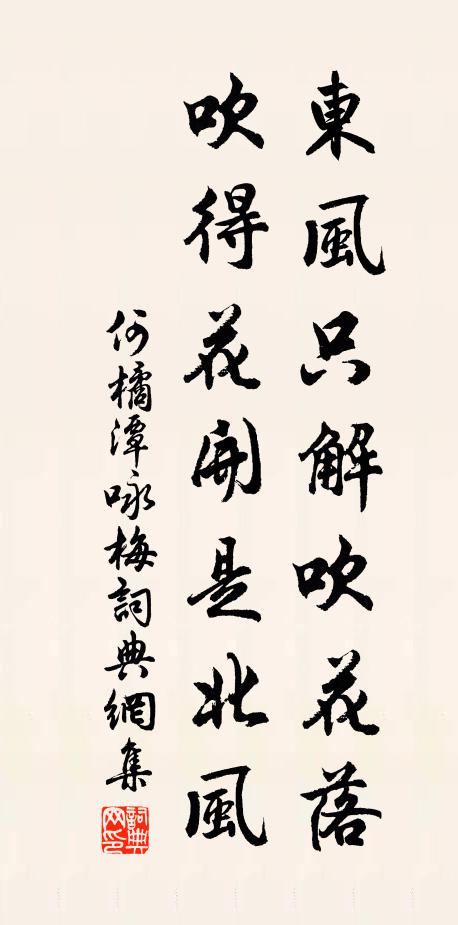 東風只解吹花落
吹得花開是北風
何橘潭咏梅詞典網集
詞典网印